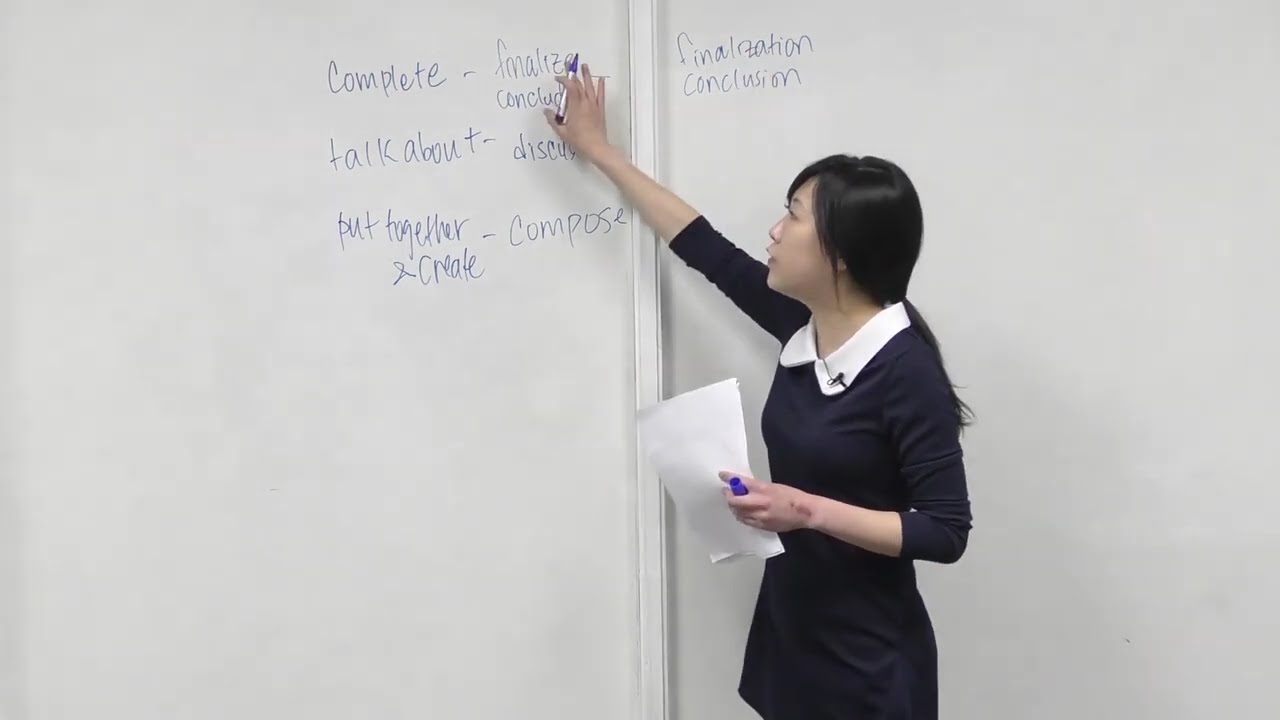 complete - finalize
conclude
talk about - discuss
put together - compose
& create
finalization
conclusion